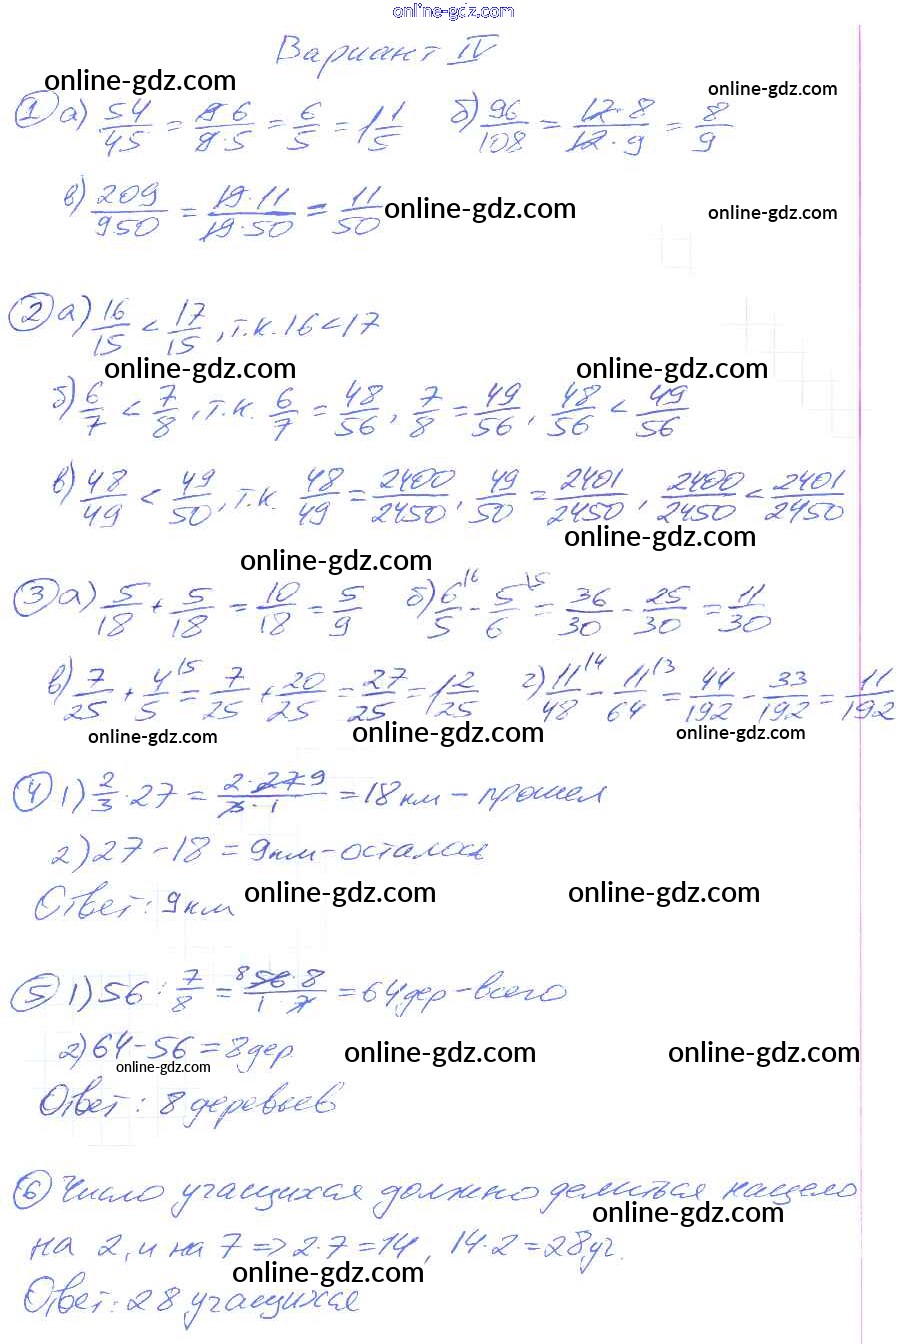 online-gdz.com
Вариант IV
online-gdz.com online-gdz.com
① а) 54/45 = 9·6/9·5 = 6/5 = 1 1/5 б) 96/108 = 12·8/12·9 = 8/9
в) 209/950 = 19·11/19·50 = 11/50 online-gdz.com online-gdz.com
② а) 16/15 < 17/15, т.к. 16 < 17
online-gdz.com online-gdz.com
б) 6/7 < 7/8, т.к. 6/7 = 48/56, 7/8 = 49/56, 48/56 < 49/56
в) 48/49 < 49/50, т.к. 48/49 = 2400/2450, 49/50 = 2401/2450, 2400/2450 < 2401/2450
online-gdz.com online-gdz.com
③ а) 5/18 + 5/18 = 10/18 = 5/9 б) 6/5 \6 - 5/6 \5 = 36/30 - 25/30 = 11/30
в) 7/25 + 4/5 \5 = 7/25 + 20/25 = 27/25 = 1 2/25 г) 11/48 \4 - 11/64 \3 = 44/192 - 33/192 = 11/192
online-gdz.com online-gdz.com online-gdz.com
④ 1) 2/3 · 27 = 2·27 9/3·1 = 18 км - прошел
2) 27 - 18 = 9км - осталось
Ответ: 9 км online-gdz.com online-gdz.com
⑤ 1) 56 : 7/8 = 8 56·8/1·7 = 64 дер - всего
2) 64 - 56 = 8 дер online-gdz.com online-gdz.com
online-gdz.com
Ответ: 8 деревьев
⑥ Число учащихся должно делиться нацело
online-gdz.com
на 2, и на 7 => 2·7 = 14, 14·2 = 28 уч.
online-gdz.com
Ответ: 28 учащихся